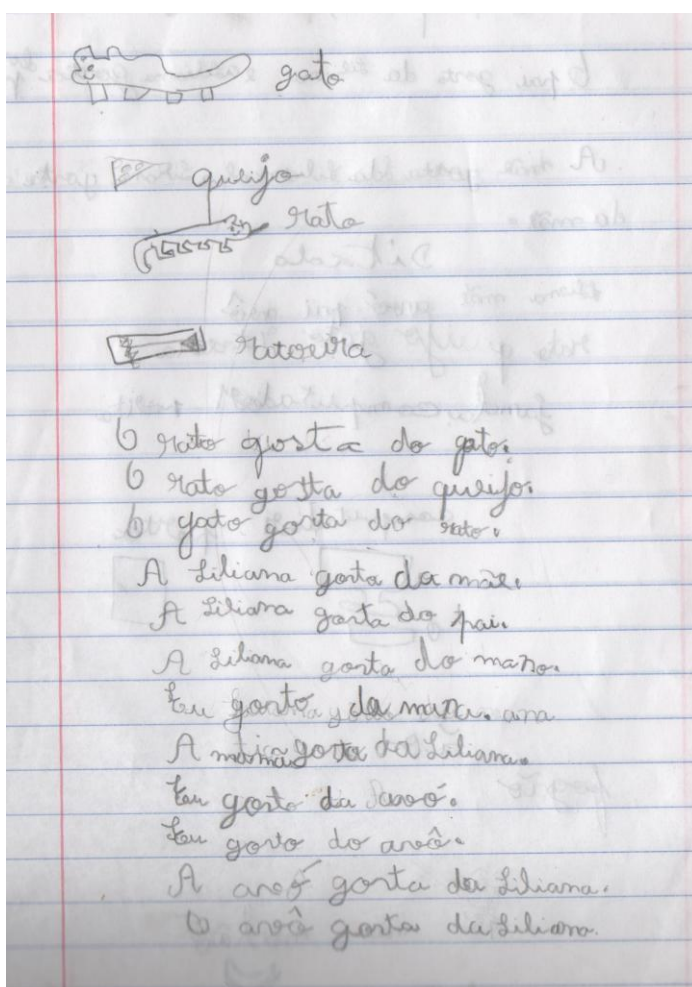 gato
queijo
rato
ratoeira
O rato gosta do gato.
O rato gosta do queijo.
O gato gosta do rato.
A Liliana gosta da mãe.
A Liliana gosta do pai.
A Liliana gosta do mano.
Eu gosto da mana.
A gosta da Liliana.
Eu gosto da avó.
Eu gosto do avô.
A avó gosta da Liliana.
O avô gosta da Liliana.